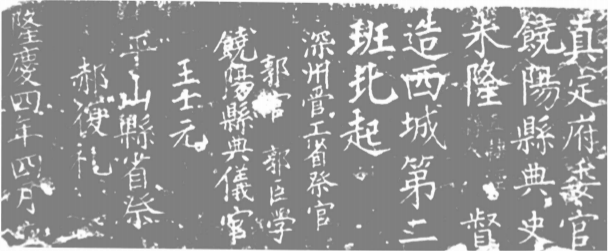 真定府委官
饒陽縣典史
朱隆 督
造西城第二
班北起
深州管工省祭官
郭 郭臣学
饒陽縣典儀官
王士元
平山縣省祭
郝復礼
隆慶四年四月